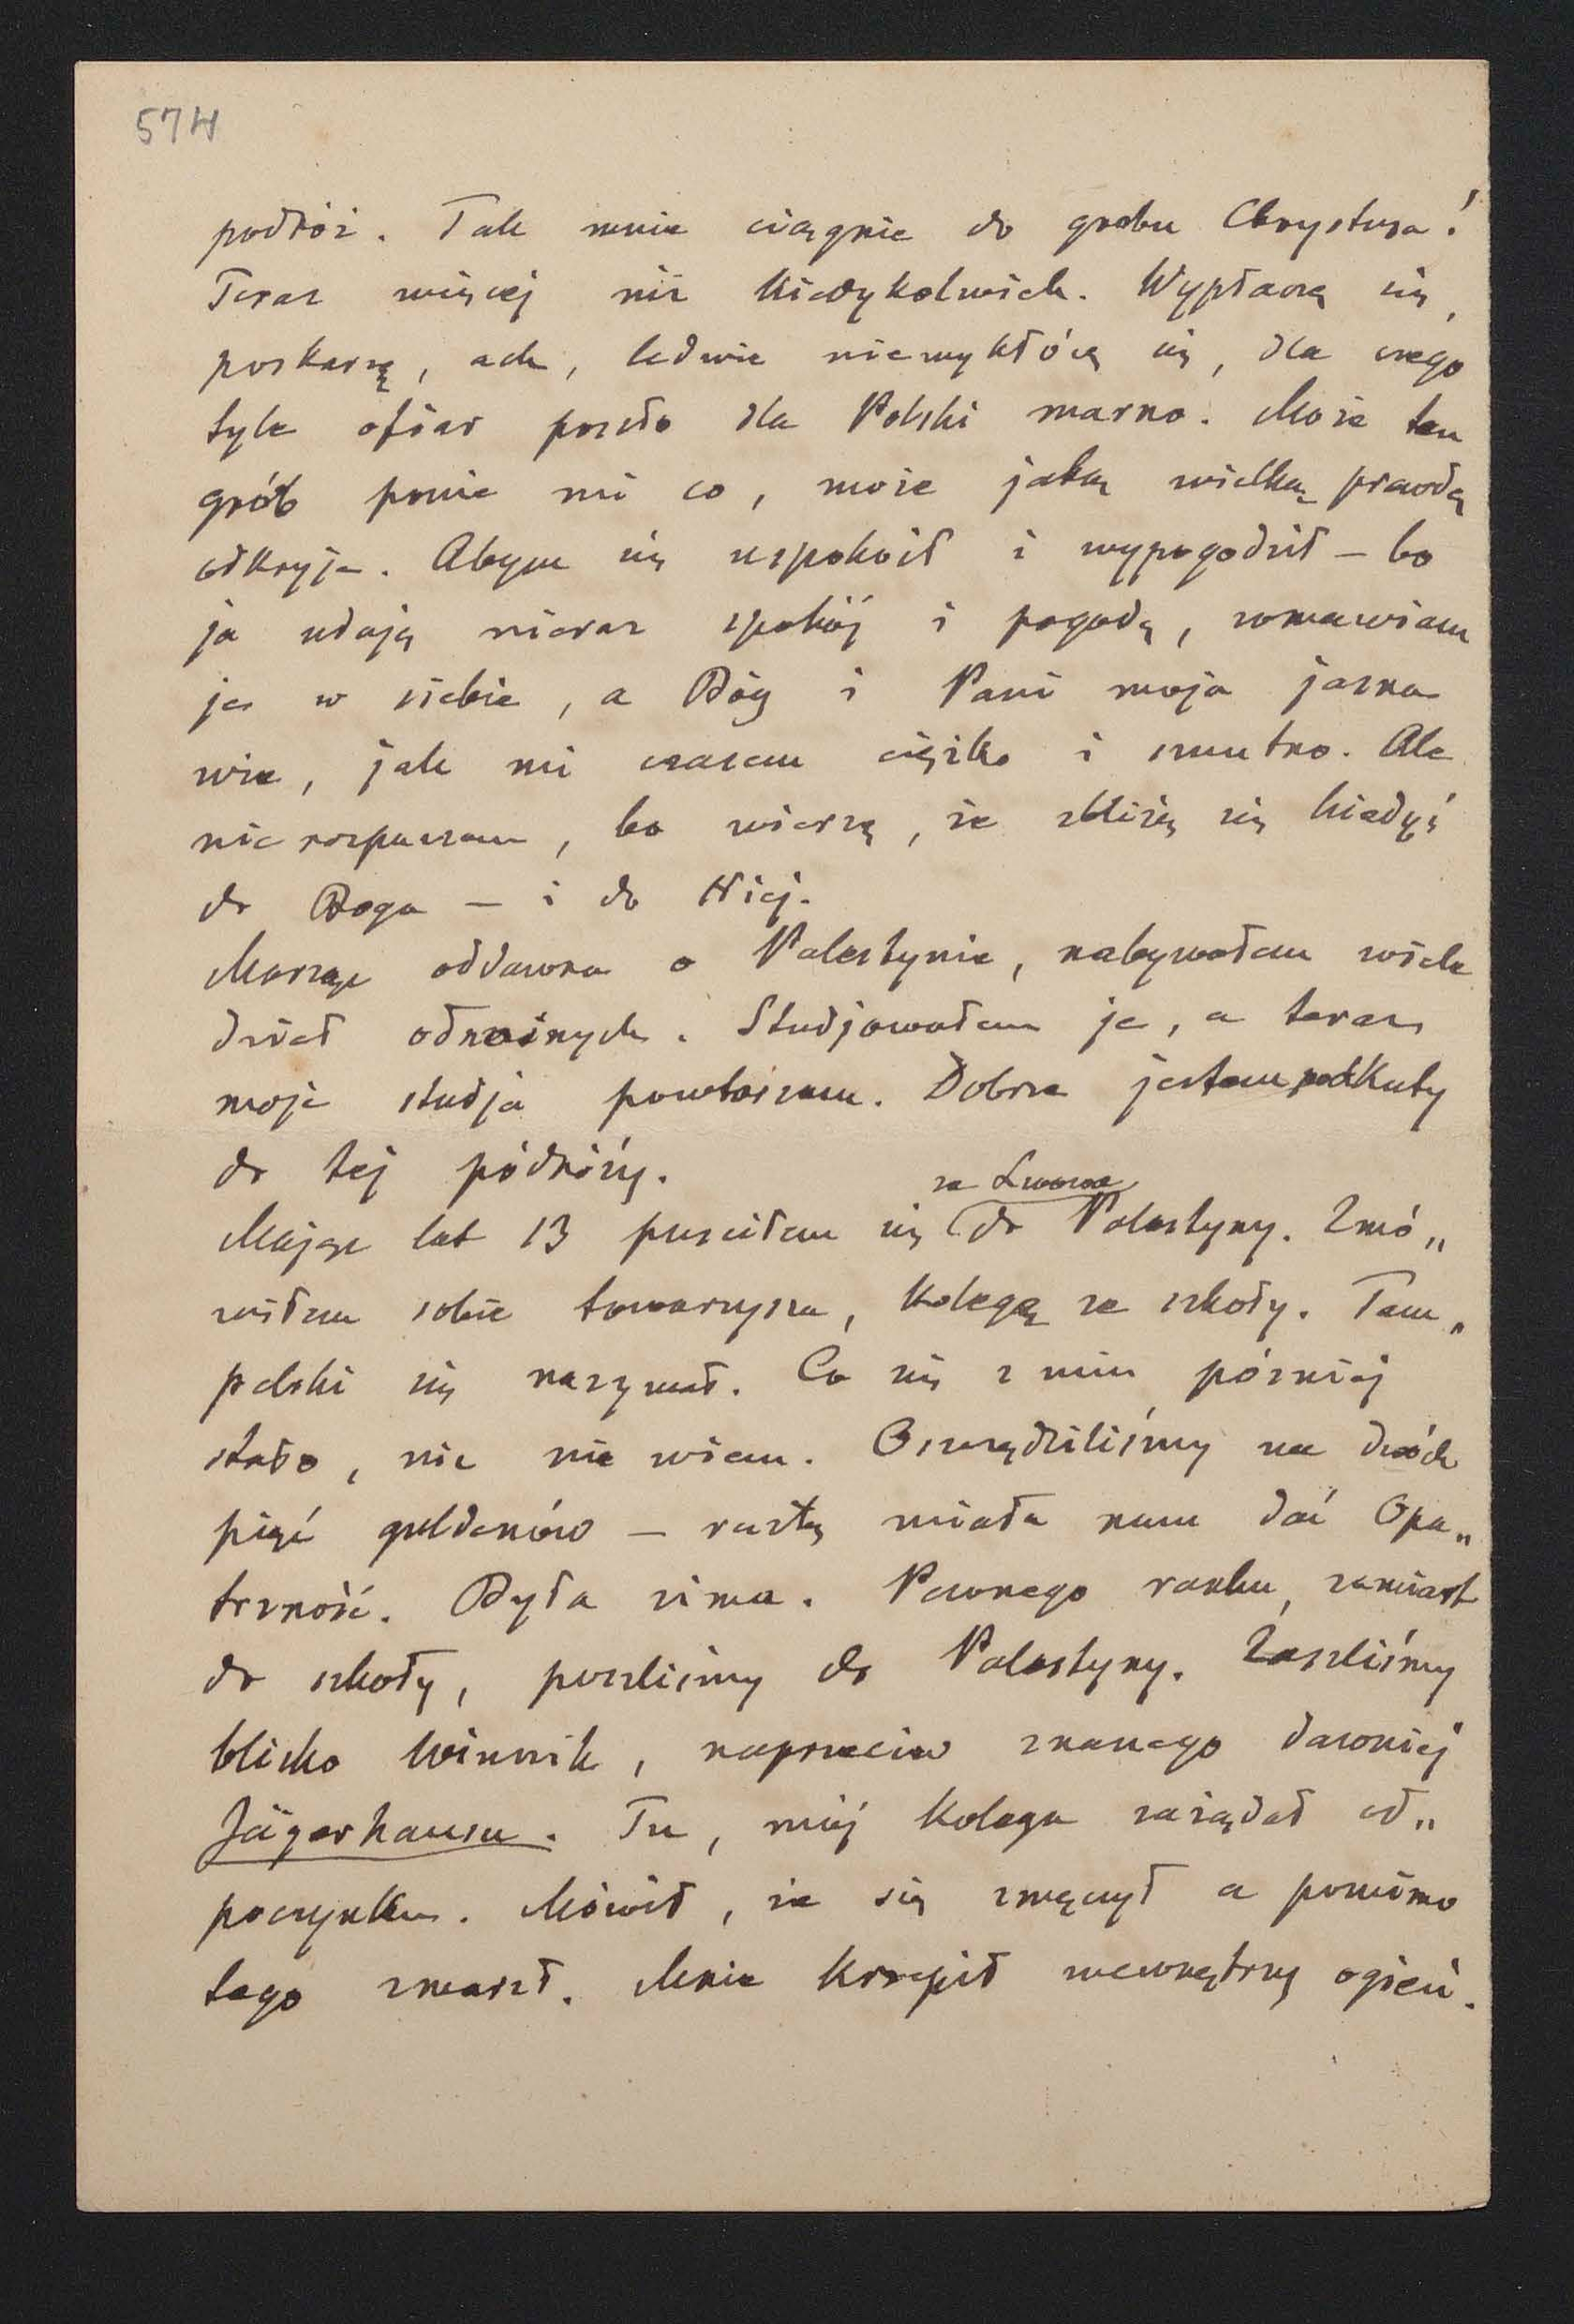 574
podróż. Tak mnie ciągnie do grobu Chrystusa!
Teraz więcej niż kiedykolwiek. Wypłaczę się,
poskarzę, ach, ledwie niewykłócę się, dla czego
tyle ofiar poszło dla Polski marno. Może ten
grób powie mi co, może jaką wielką prawdę
odkryję. Abym się uspokoił i wypogodził – bo
ja udaję nieraz spokój i pogodę, wmawiam
je w siebie, a Bóg i Pani moja jasna
wie, jak mi czasem ciężko i smutno. Ale
nie rozpaczam, bo wierzę, że zbliżę się kiedyś
do Boga – i do Niej.
Marzę oddawna o Palestynie, nabywałem wiele
dzieł odnośnych. Studjowałem je, a teraz
moje studja powtarzam. Dobrze jestem podkuty
do tej pódróży.
ze Lwowa
Mając lat 13 puściłem się do Palestyny. Zmó„
wiłem sobie towarzysza, kolegę ze szkoły. Tem„
polski się nazywał. Co się z nim później
stało, nic nie wiem. Oszczędziliśmy na dwóch
pięć guldenów – resztę miała nam dać Opa„
trzność. Była zima. Pewnego ranku, zamiast
do szkoły, poszliśmy do Palestyny. Zaszliśmy
blisko Winnik, naprzeciw znanego dawniej
Jägerhausu. Tu, mój kolega zażądał od„
poczynku. Mówił, że się zmęczył a pomimo
tego zmarzł. Mnie krzepił wewnętrzny ogień.